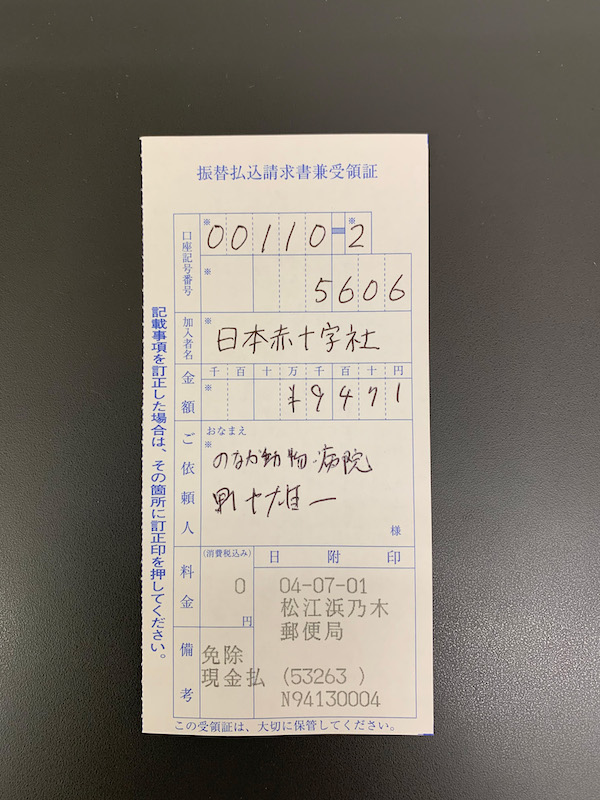 振替払込請求書兼受領証
口座記号番号
※ 00110-2 ※
※ 5606
加入者名
※ 日本赤十字社
金額
千 百 十 万 千 百 十 円
※ ¥9471
ご依頼人
おなまえ
※
のなか動物病院
雄一
様
料金
(消費税込み)
0
円
日附印
04-07-01
松江浜乃木
郵便局
備考
免除
現金払 (53263 )
N94130004
この受領証は、大切に保管してください。
記載事項を訂正した場合は、その箇所に訂正印を押してください。